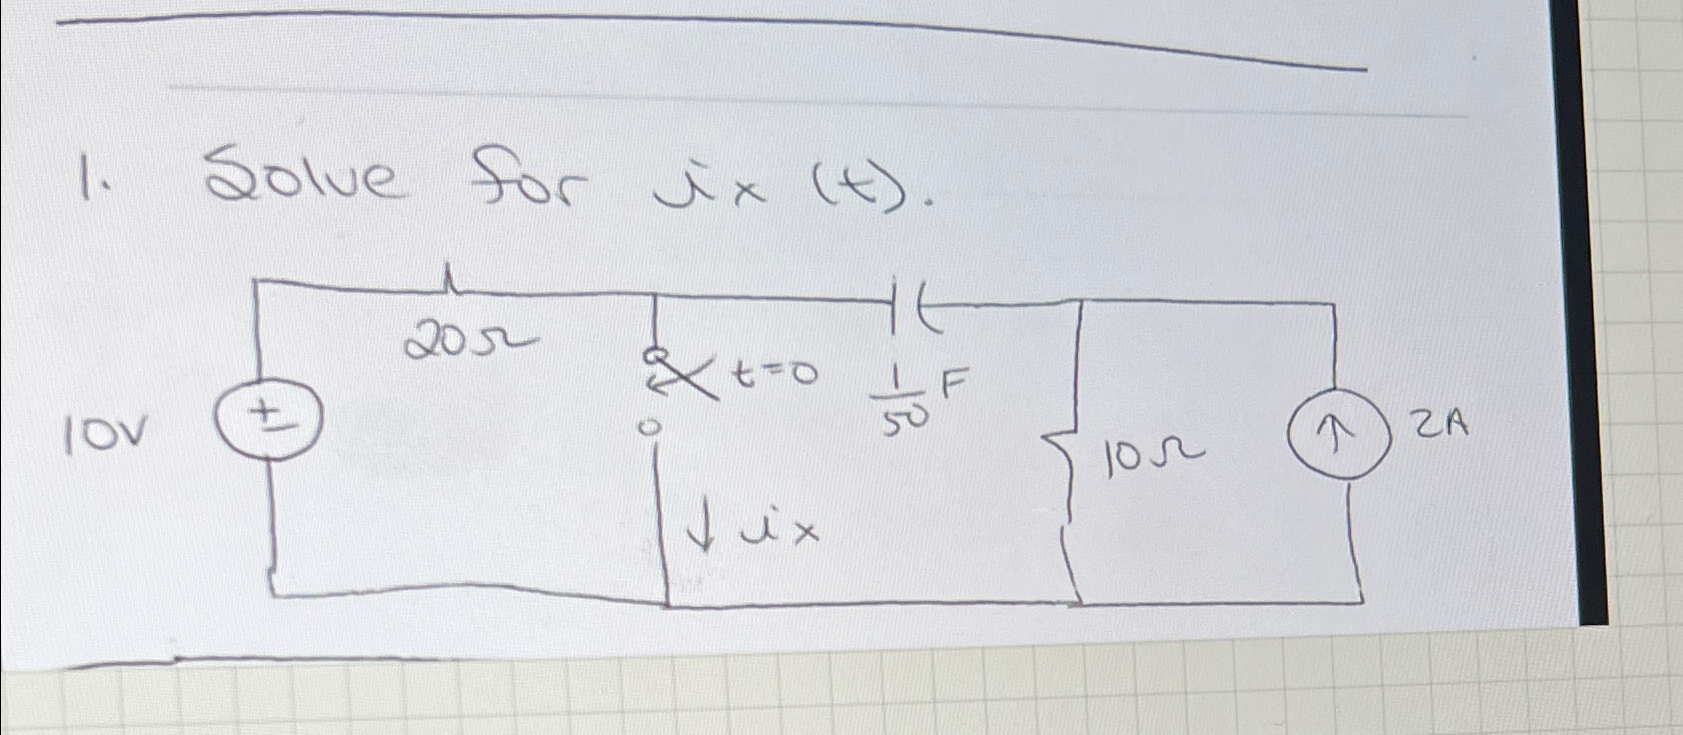 1. Solve for ix (t).
20Ω
t=0
1/50 F
10V
+
-
10Ω
2A
ix